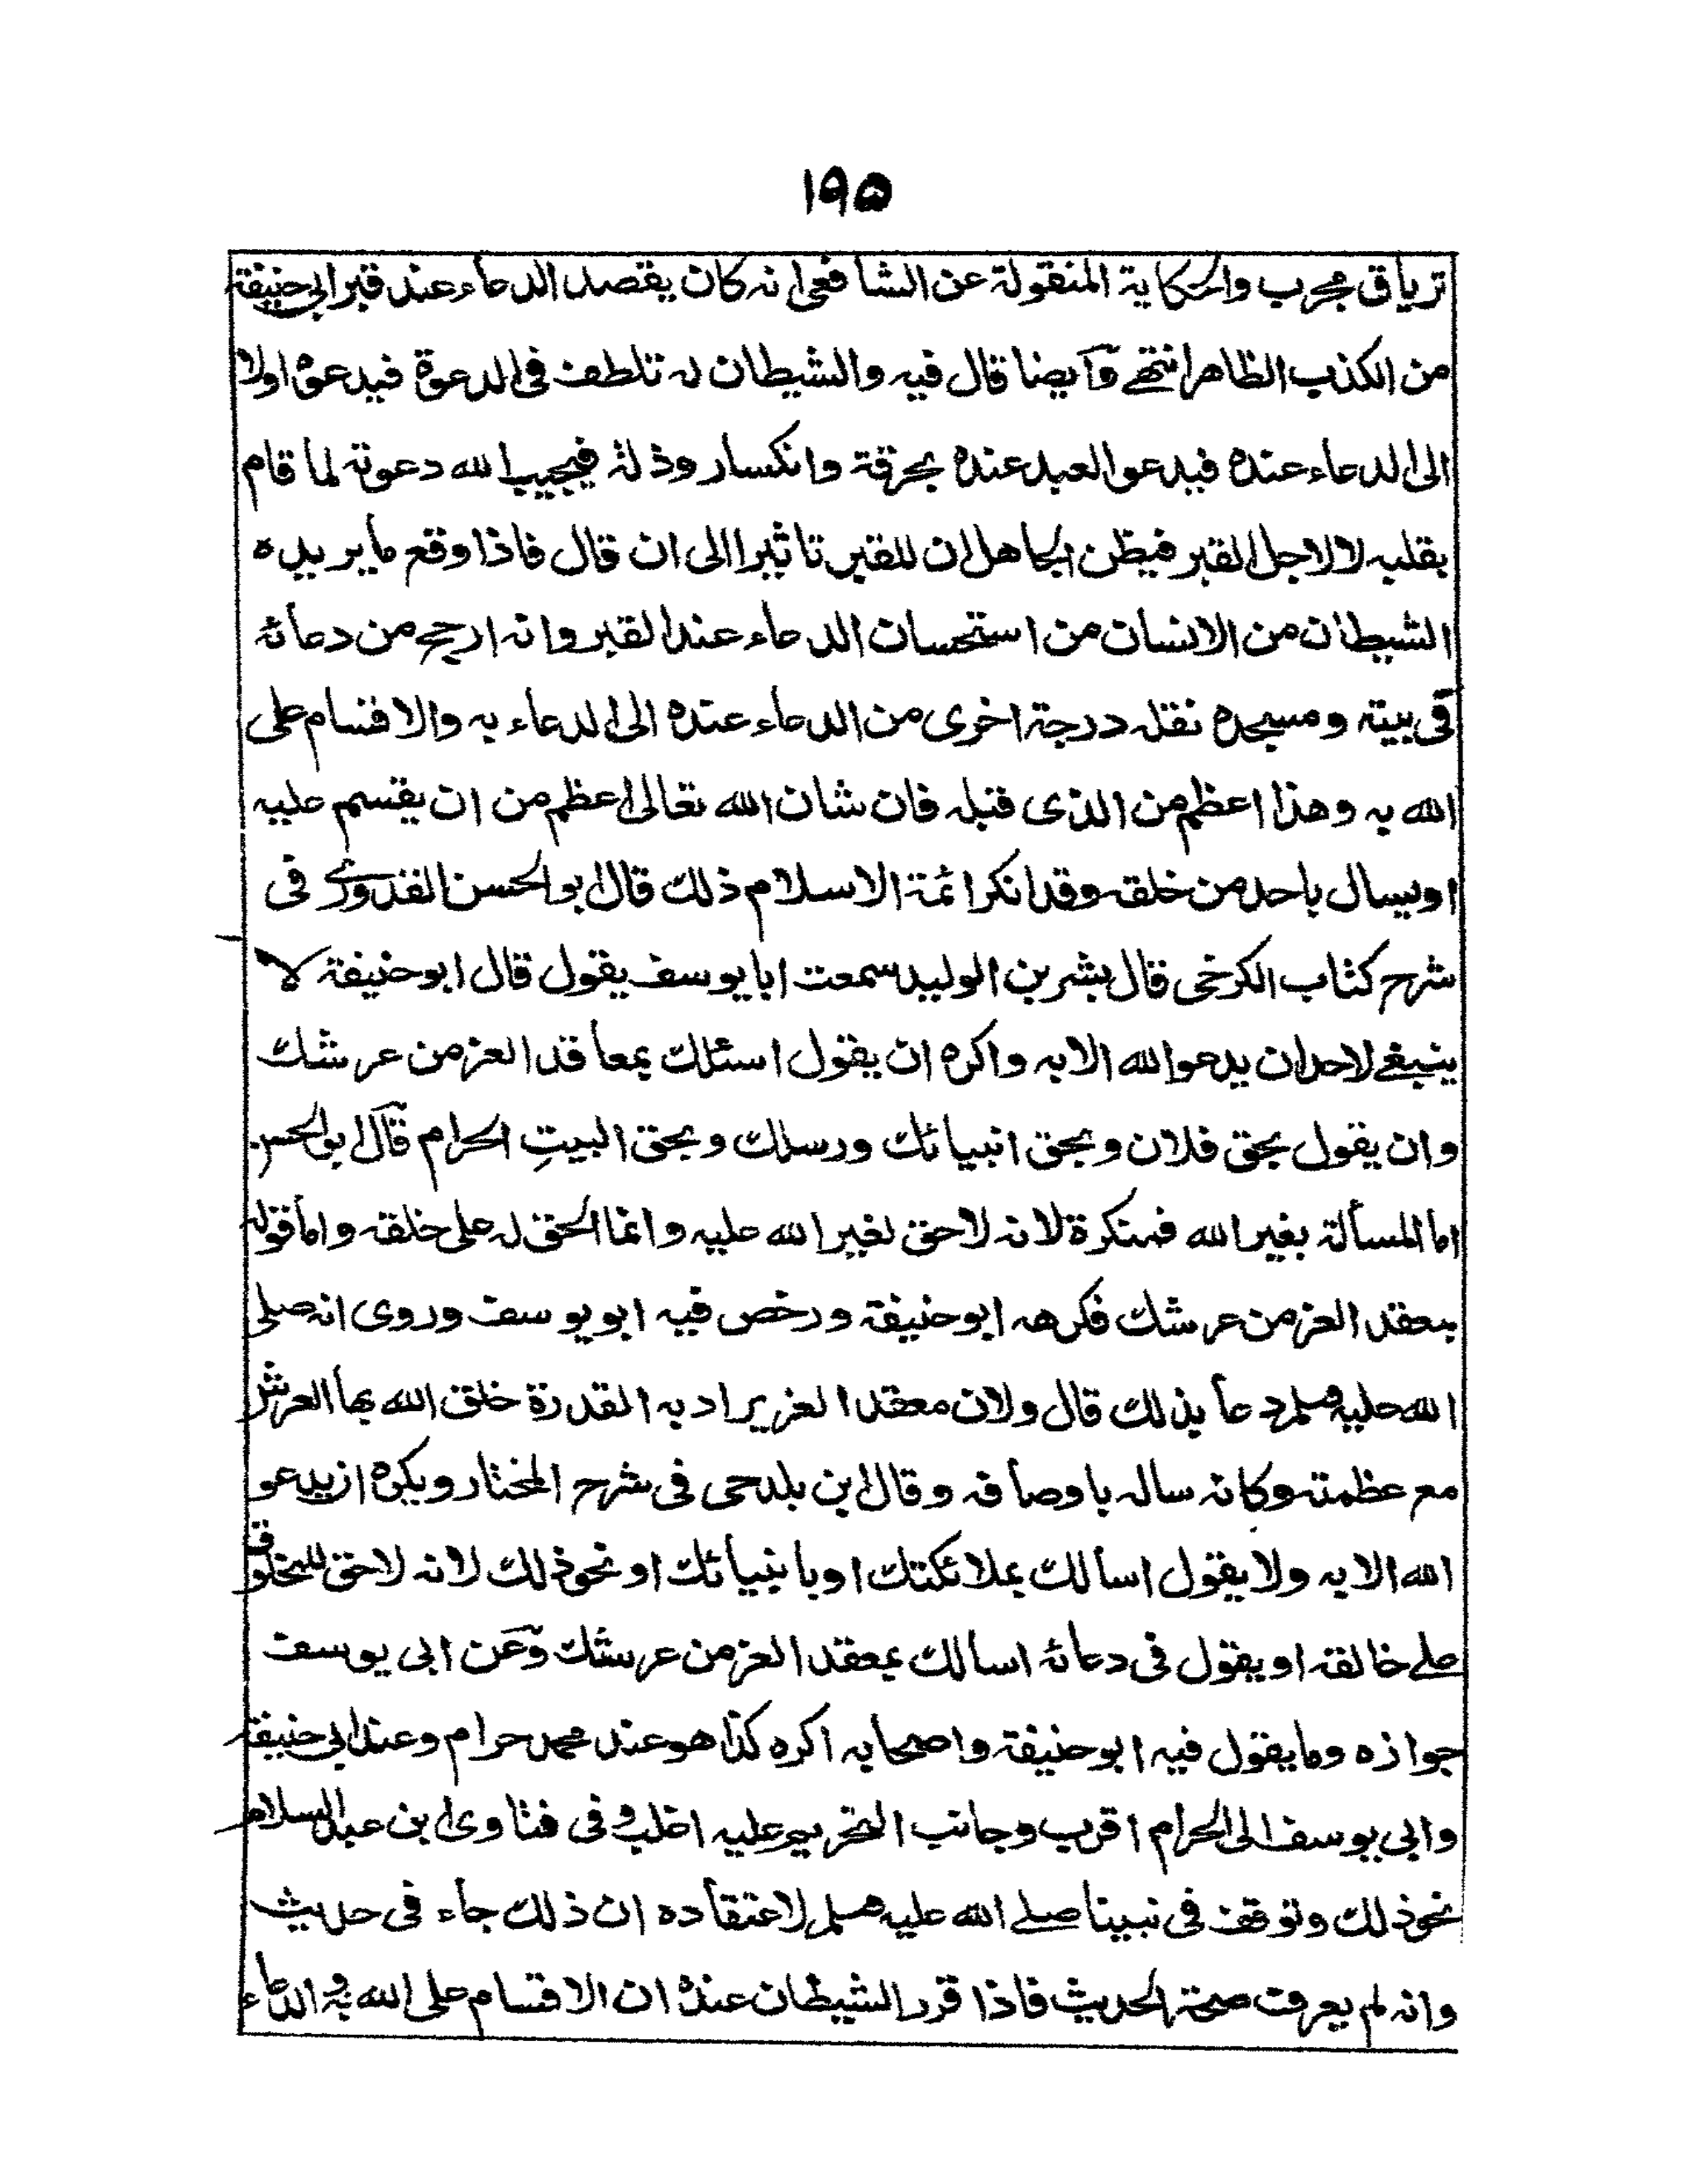 ١٩٥
ترياق مجرب والحكاية المنقولة عن الشافعي انه كان يقصد الدعاء عند قبر ابي حنيفة
من الكذب الظاهر انتهے وآيضا قال فيه والشيطان له تلطف فى الدعوة فيدعوه اولا
الى الدعاء عنده فيدعو العبد عنده بحرقة وانكسار وذلة فيجيب الله دعوته لما قام
بقلبه لا لاجل القبر فيظن الجاهل ان للقبر تاثيرا الى ان قال فاذا وقع ما يريده
الشيطان من الانسان من استحسان الدعاء عند القبر وانه ارجح من دعائه
فى بيته ومسجده نقله درجة اخرى من الدعاء عنده الى الدعاء به والاقسام على
الله به وهذا اعظم من الذى قبله فان شان الله تعالى اعظم من ان يقسم عليه
او يسال باحد من خلقه وقد انكر ائمة الاسلام ذلك قال ابو الحسن القدورى فى
شرح كتاب الكرخى قال بشر بن الوليد سمعت ابا يوسف يقول قال ابو حنيفة لا
ينبغے لاحد ان يدعو الله الا به واكره ان يقول اسئلك بمعاقد العز من عرشك
وان يقول بحق فلان وبحق انبيائك ورسلك وبحق البيتِ الحرام قال ابو الحسن
اما المسألة بغير الله فمنكرة لانه لا حق لغير الله عليه وانما الحق له على خلقه واما قوله
بمعقد العز من عرشك فكرهه ابو حنيفة ورخص فيه ابو يوسف وروى انه صلى
الله عليه وسلم دعا بذلك قال ولان معقد العز يراد به القدرة خلق الله بها العرش
مع عظمته وكانه ساله باوصافه وقال ابن بلدحى فى شرح المختار ويكره ان يدعو
الله الا به ولا يقول اسالك بملائكتك او بانبيائك او نحو ذلك لانه لا حق للمخلوق
علے خالقه او يقول فى دعائه اسالك بمعقد العز من عرشك وعن ابى يوسف
جوازه وما يقول فيه ابو حنيفة واصحابه اكره كذا هو عند محمد حرام وعند ابى حنيفة
وابى يوسف الى الحرام اقرب وجانب التحريم عليه اغلب وفى فتاوى ابن عبد السلام
نحو ذلك وتوقف فى نبينا صلے الله عليه وسلم لاعتقاده ان ذلك جاء فى حديث
وانه لم يعرف صحة الحديث فاذا قرر الشيطان عنده ان الاقسام على الله به والدعاء